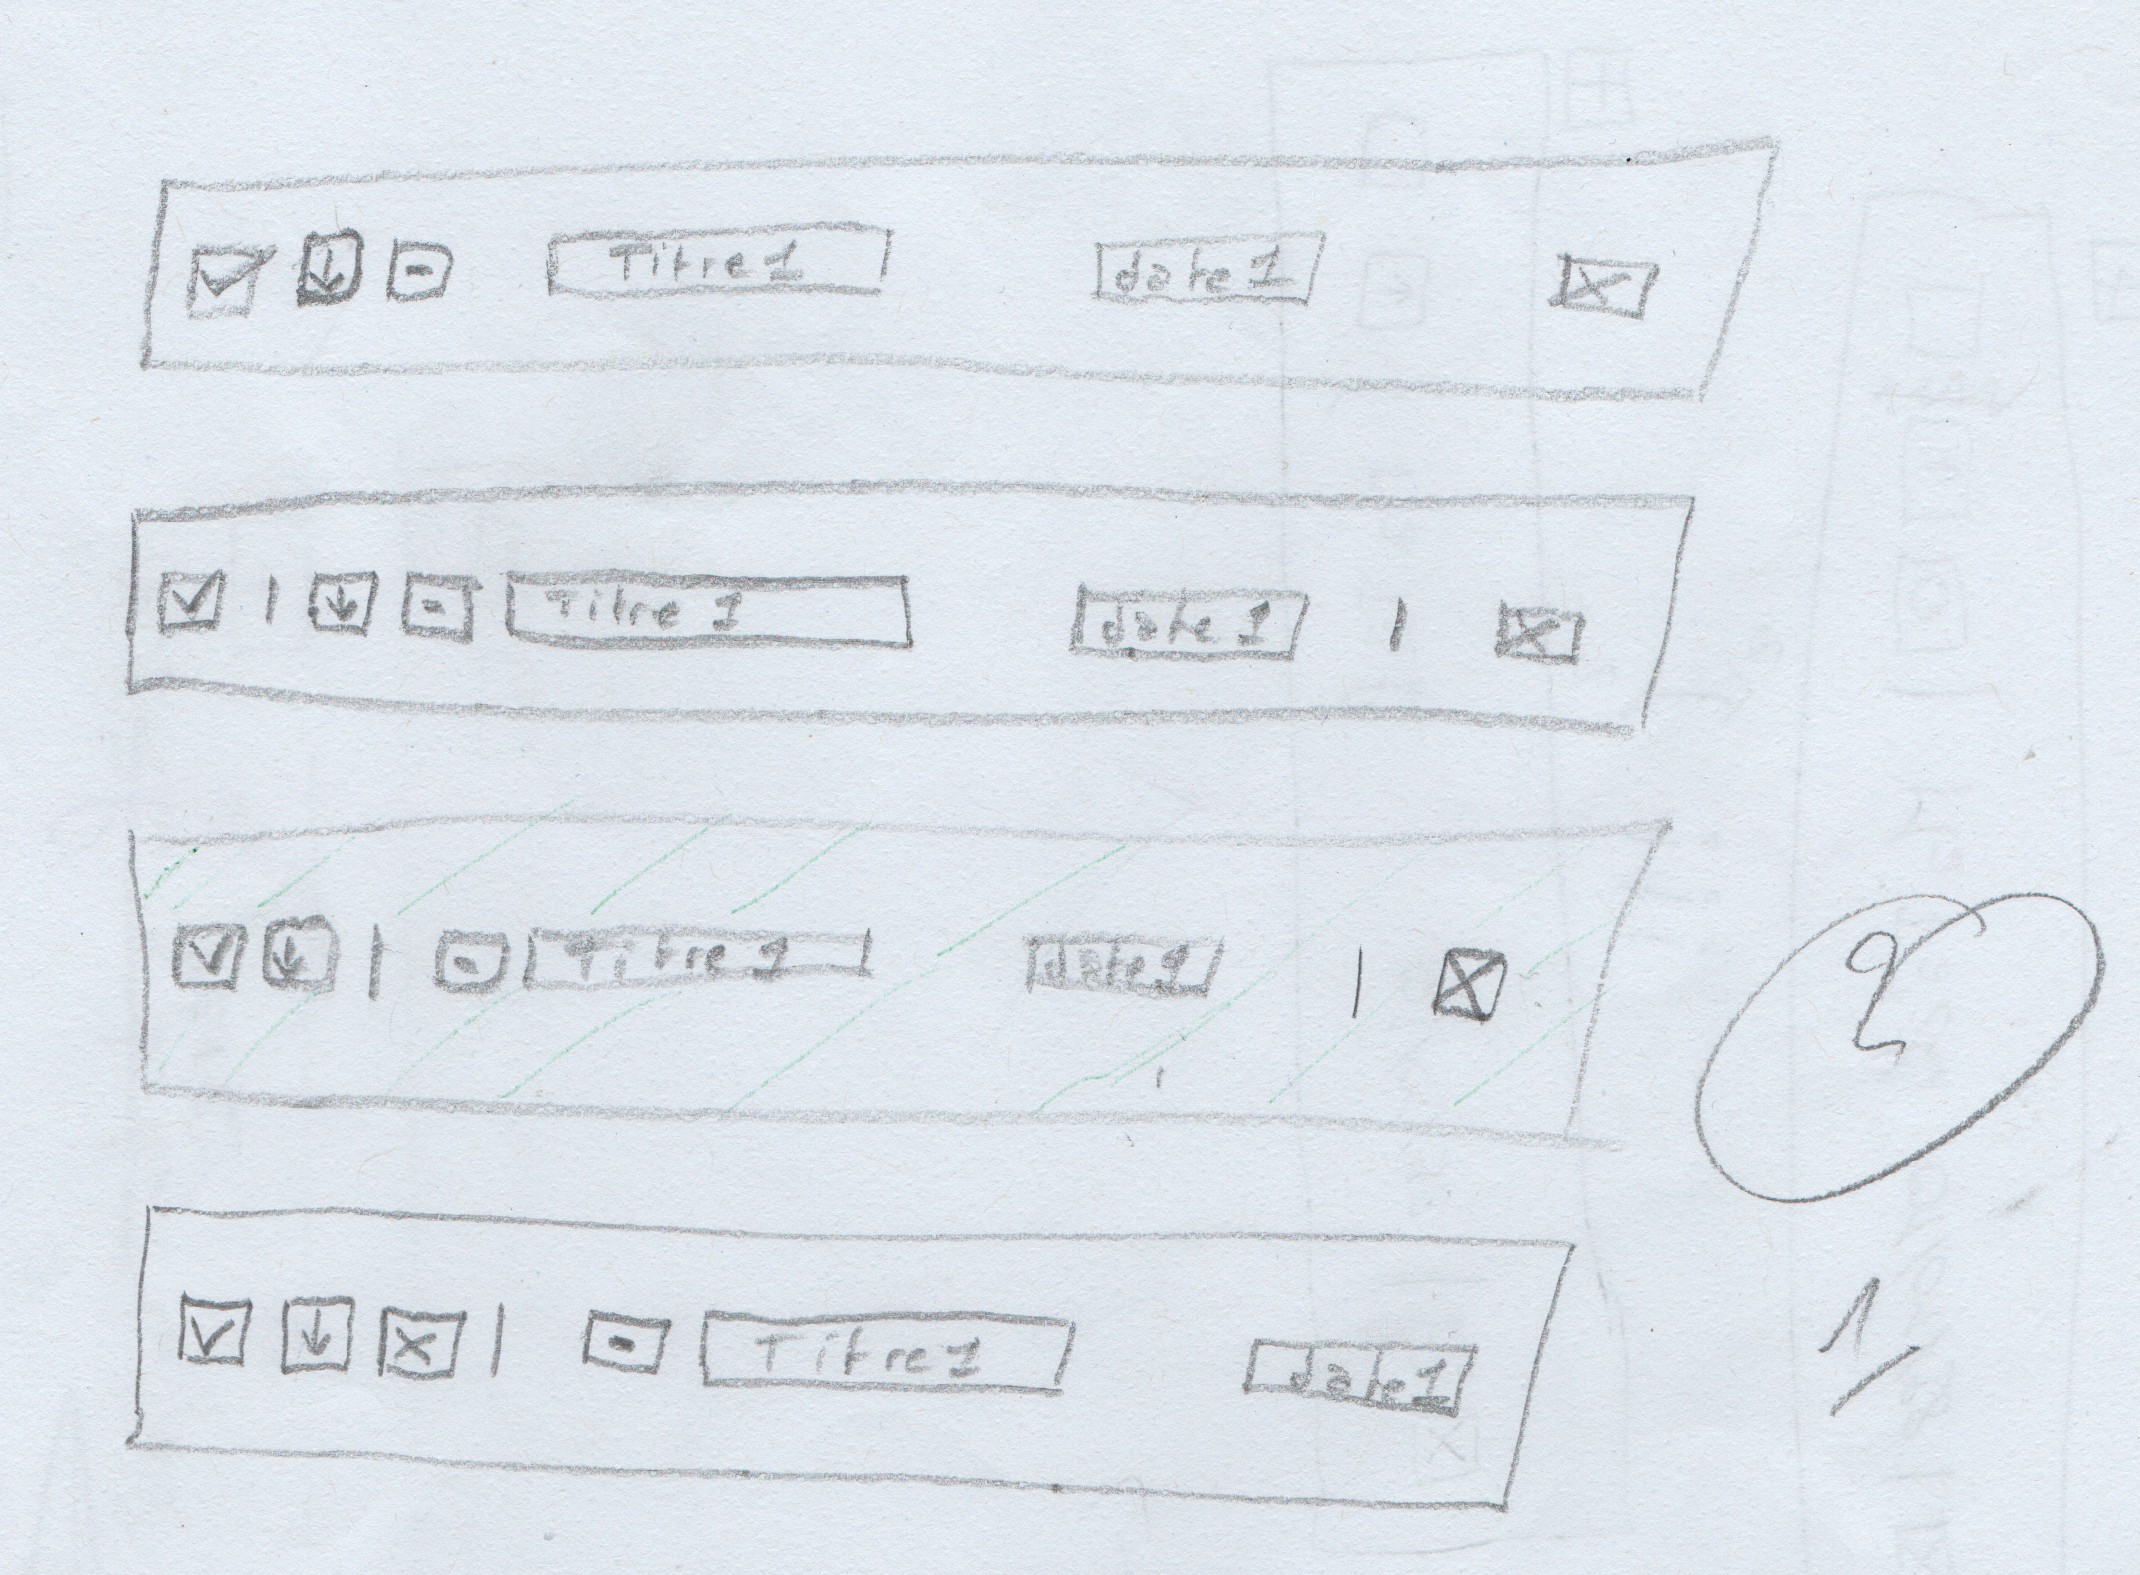 Titre 1 date 1
Titre 1 date 1
Titre 1 date 1
2
Titre 1 date 1
1